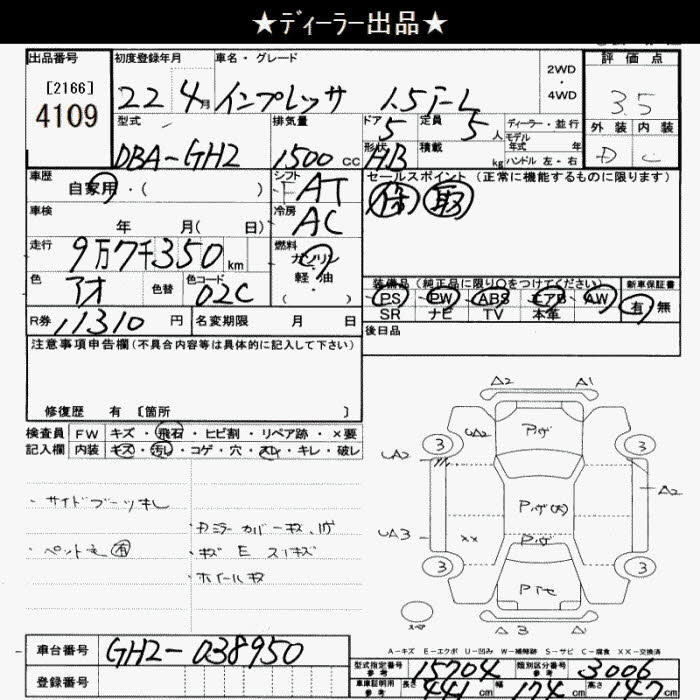 ★ディーラー出品★
出品番号
[2166]
4109
初度登録年月
22 4月
車名・グレード
インプレッサ 1.5i-L
2WD
・
4WD
評価点
3.5
外装 内装
D C
型式
DBA-GH2
排気量
1500 cc
ドア
5
定員
5人
形状
HB
積載
kg
ディーラー・並行
モデル
年式 年
ハンドル 左・右
車歴
自家用・( )
シフト
F AT
セールスポイント (正常に機能するものに限ります)
保 取
車検
年 月( 日)
冷房
AC
走行
9万7千350 km
燃料
ガソリン
軽・油
( )
色
アオ
色替
色コード
02C
装備品(純正品に限り○をつけてください)
PS PW ABS エアB AW
SR ナビ TV 本革
新車保証書
有 無
R券 11310 円
名変期限 月 日
後日品
注意事項申告欄(不具合内容等は具体的に記入して下さい)
修復歴 有 [箇所 ]
検査員
記入欄
FW キズ・飛石・ヒビ割・リペア跡・×要
内装 キズ・汚レ・コゲ・穴・スレ・キレ・破レ
・サイドブーツキレ
・ドミラーカバーキズ
・キズ E スリキズ
・ホイールキズ
A2 A1
UA2 Pハゲ
3 3
UA2
A2
Pハゲ(大)
UA3
××
Pハゲ
3 3
A3 A1
スペア
A-キズ E-エクボ U-凹み W-補修跡 S-サビ C-腐食 XX-交換済
車台番号 GH2-038950
登録番号
型式指定番号
参考
15704
類別区分番号
参考
3006
車庫証明用
参考
長さ 441 cm 幅 174 cm 高さ 147 cm